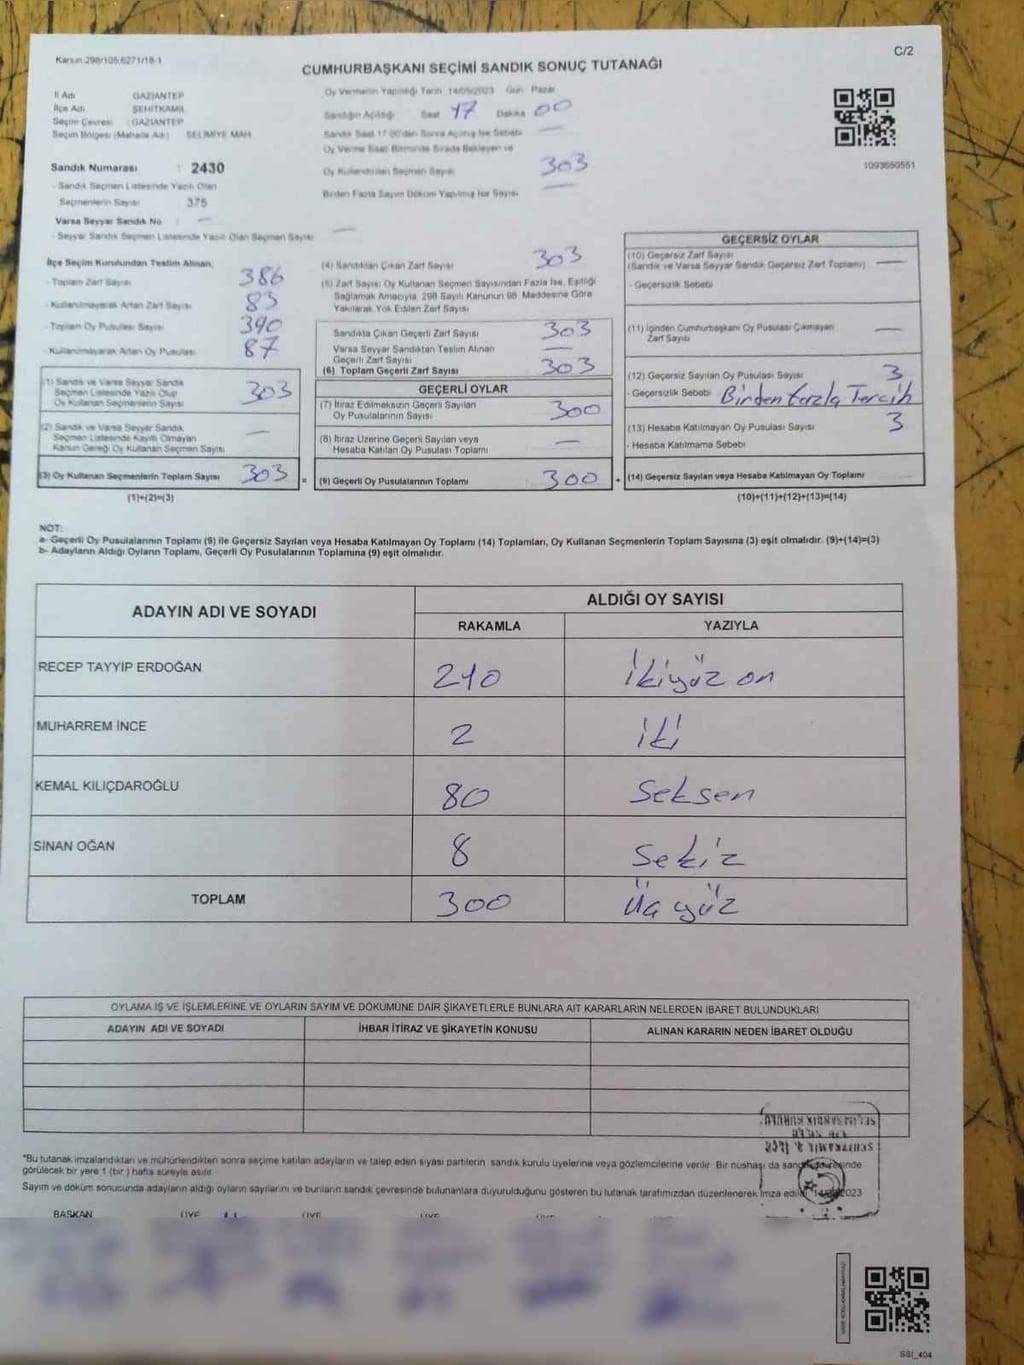 Kanun 298/105 6271/18-1
C/2
CUMHURBAŞKANI SEÇİMİ SANDIK SONUÇ TUTANAĞI
İl Adı GAZİANTEP
İlçe Adı ŞEHİTKAMİL
Seçim Çevresi : GAZİANTEP
Seçim Bölgesi (Mahalle Adı) SELİMİYE MAH.
Sandık Numarası : 2430
- Sandık Seçmen Listesinde Yazılı Olan
Seçmenlerin Sayısı 375
Varsa Seyyar Sandık No —
- Seyyar Sandık Seçmen Listesinde Yazılı Olan Seçmen Sayısı —
Oy Vermenin Yapıldığı Tarih 14/05/2023 Gün Pazar
Sandığın Açıldığı Saat 17 Dakika 00
Sandık Saat 17.00'den Sonra Açılmış İse Sebebi —
Oy Verme Saati Bitiminde Sırada Bekleyen ve
Oy Kullandırılan Seçmen Sayısı 303
Birden Fazla Sayım Döküm Yapılmış İse Sayısı —
1093650551
İlçe Seçim Kurulundan Teslim Alınan;
- Toplam Zarf Sayısı 386
- Kullanılmayarak Artan Zarf Sayısı 83
- Toplam Oy Pusulası Sayısı 390
- Kullanılmayarak Artan Oy Pusulası 87
(1) Sandık ve Varsa Seyyar Sandık
Seçmen Listesinde Yazılı Olup
Oy Kullanan Seçmenlerin Sayısı 303
(2) Sandık ve Varsa Seyyar Sandık
Seçmen Listesinde Kayıtlı Olmayan
Kanun Gereği Oy Kullanan Seçmen Sayısı —
(3) Oy Kullanan Seçmenlerin Toplam Sayısı 303
(1)+(2)=(3)
(4) Sandıktan Çıkan Zarf Sayısı 303
(5) Zarf Sayısı Oy Kullanan Seçmen Sayısından Fazla İse, Eşitliği
Sağlamak Amacıyla, 298 Sayılı Kanunun 98. Maddesine Göre
Yakılarak Yok Edilen Zarf Sayısı
Sandıkta Çıkan Geçerli Zarf Sayısı 303
Varsa Seyyar Sandıktan Teslim Alınan
Geçerli Zarf Sayısı —
(6) Toplam Geçerli Zarf Sayısı 303
GEÇERLİ OYLAR
(7) İtiraz Edilmeksizin Geçerli Sayılan
Oy Pusulalarının Sayısı 300
(8) İtiraz Üzerine Geçerli Sayılan veya
Hesaba Katılan Oy Pusulası Toplamı —
= (9) Geçerli Oy Pusulalarının Toplamı 300 +
GEÇERSİZ OYLAR
(10) Geçersiz Zarf Sayısı
(Sandık ve Varsa Seyyar Sandık Geçersiz Zarf Toplamı) —
- Geçersizlik Sebebi
(11) İçinden Cumhurbaşkanı Oy Pusulası Çıkmayan
Zarf Sayısı —
(12) Geçersiz Sayılan Oy Pusulası Sayısı 3
- Geçersizlik Sebebi Birden fazla Tercih
(13) Hesaba Katılmayan Oy Pusulası Sayısı 3
- Hesaba Katılmama Sebebi
(14) Geçersiz Sayılan veya Hesaba Katılmayan Oy Toplamı
(10)+(11)+(12)+(13)=(14)
NOT:
a- Geçerli Oy Pusulalarının Toplamı (9) ile Geçersiz Sayılan veya Hesaba Katılmayan Oy Toplamı (14) Toplamları, Oy Kullanan Seçmenlerin Toplam Sayısına (3) eşit olmalıdır. (9)+(14)=(3)
b- Adayların Aldığı Oyların Toplamı, Geçerli Oy Pusulalarının Toplamına (9) eşit olmalıdır.
ADAYIN ADI VE SOYADI
ALDIĞI OY SAYISI
RAKAMLA YAZIYLA
RECEP TAYYİP ERDOĞAN 210 İkiyüz on
MUHARREM İNCE 2 iki
KEMAL KILIÇDAROĞLU 80 Seksen
SİNAN OĞAN 8 Sekiz
TOPLAM 300 Üç yüz
OYLAMA İŞ VE İŞLEMLERİNE VE OYLARIN SAYIM VE DÖKÜMÜNE DAİR ŞİKAYETLERLE BUNLARA AİT KARARLARIN NELERDEN İBARET BULUNDUKLARI
ADAYIN ADI VE SOYADI İHBAR İTİRAZ VE ŞİKAYETİN KONUSU ALINAN KARARIN NEDEN İBARET OLDUĞU
*Bu tutanak imzalandıktan ve mühürlendikten sonra seçime katılan adayların ve talep eden siyasi partilerin sandık kurulu üyelerine veya gözlemcilerine verilir. Bir nüshası da sandık çevresinde
görülecek bir yere 1 (bir) hafta süreyle asılır.
Sayım ve döküm sonucunda adayların aldığı oyların sayılarını ve bunların sandık çevresinde bulunanlara duyurulduğunu gösteren bu tutanak tarafımızdan düzenlenerek imza edildi. 14/05/2023
BAŞKAN ÜYE ÜYE ÜYE ÜYE
SSI_404